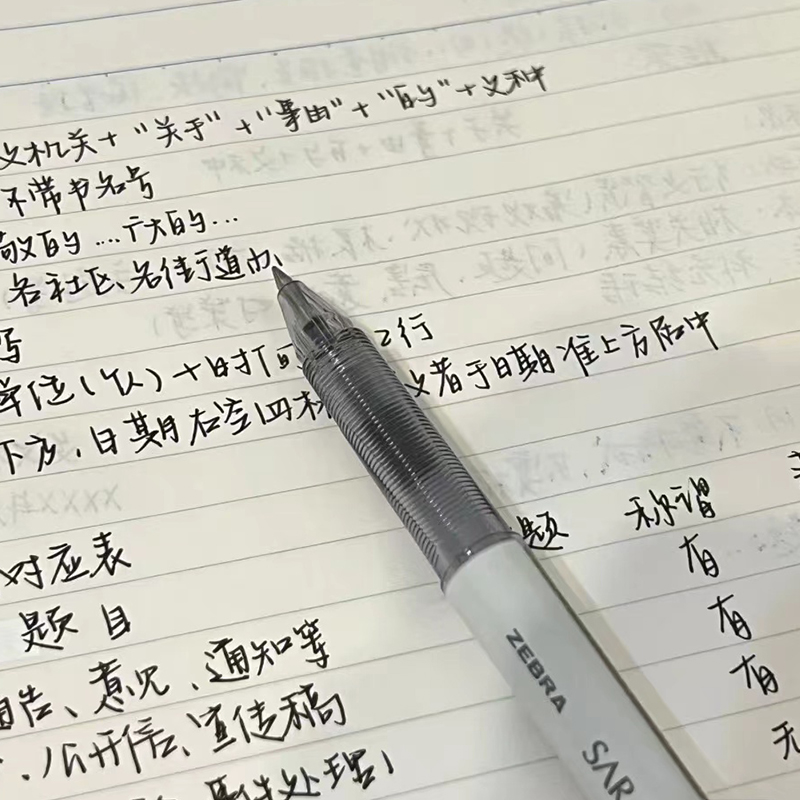 文机关+"关于"+"事由"+"的"+文种
不带书名号
敬的…广大的…
各社区、各街道办、
写
单位(以)+时间 2行
下方,日期右空四 者于日期准上方居中
对应表
题目
题 称谓
有
报告、意见、通知等
有
、公开信、宣传稿
有
处理)
无
ZEBRA
SAR